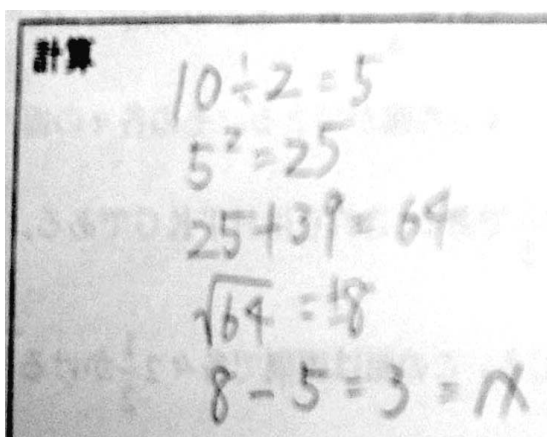 計算
10÷2=5
5²=25
25+39=64
√64=±8
8-5=3=x